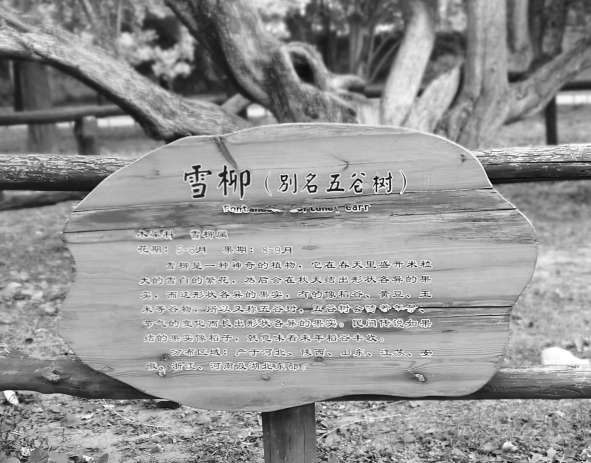 雪柳（别名五谷树）
Fontanesia fortunei Carr
木犀科 雪柳属
花期：5-6月 果期：8-9月
雪柳是一种神奇的植物，它在春天里盛开米粒
大的雪白的繁花，然后会在秋天结出形状各异的果
实，而这形状各异的果实，有的像稻谷、黄豆、玉
米等谷物，所以又称五谷树。五谷树会
节气的变化而长出形状各异的果实，民间传说如果
结的果实像稻子，就意味着来年稻谷丰收。
分布区域：产于河北、陕西、山东、江苏、安
徽、浙江、河南及湖北东部。